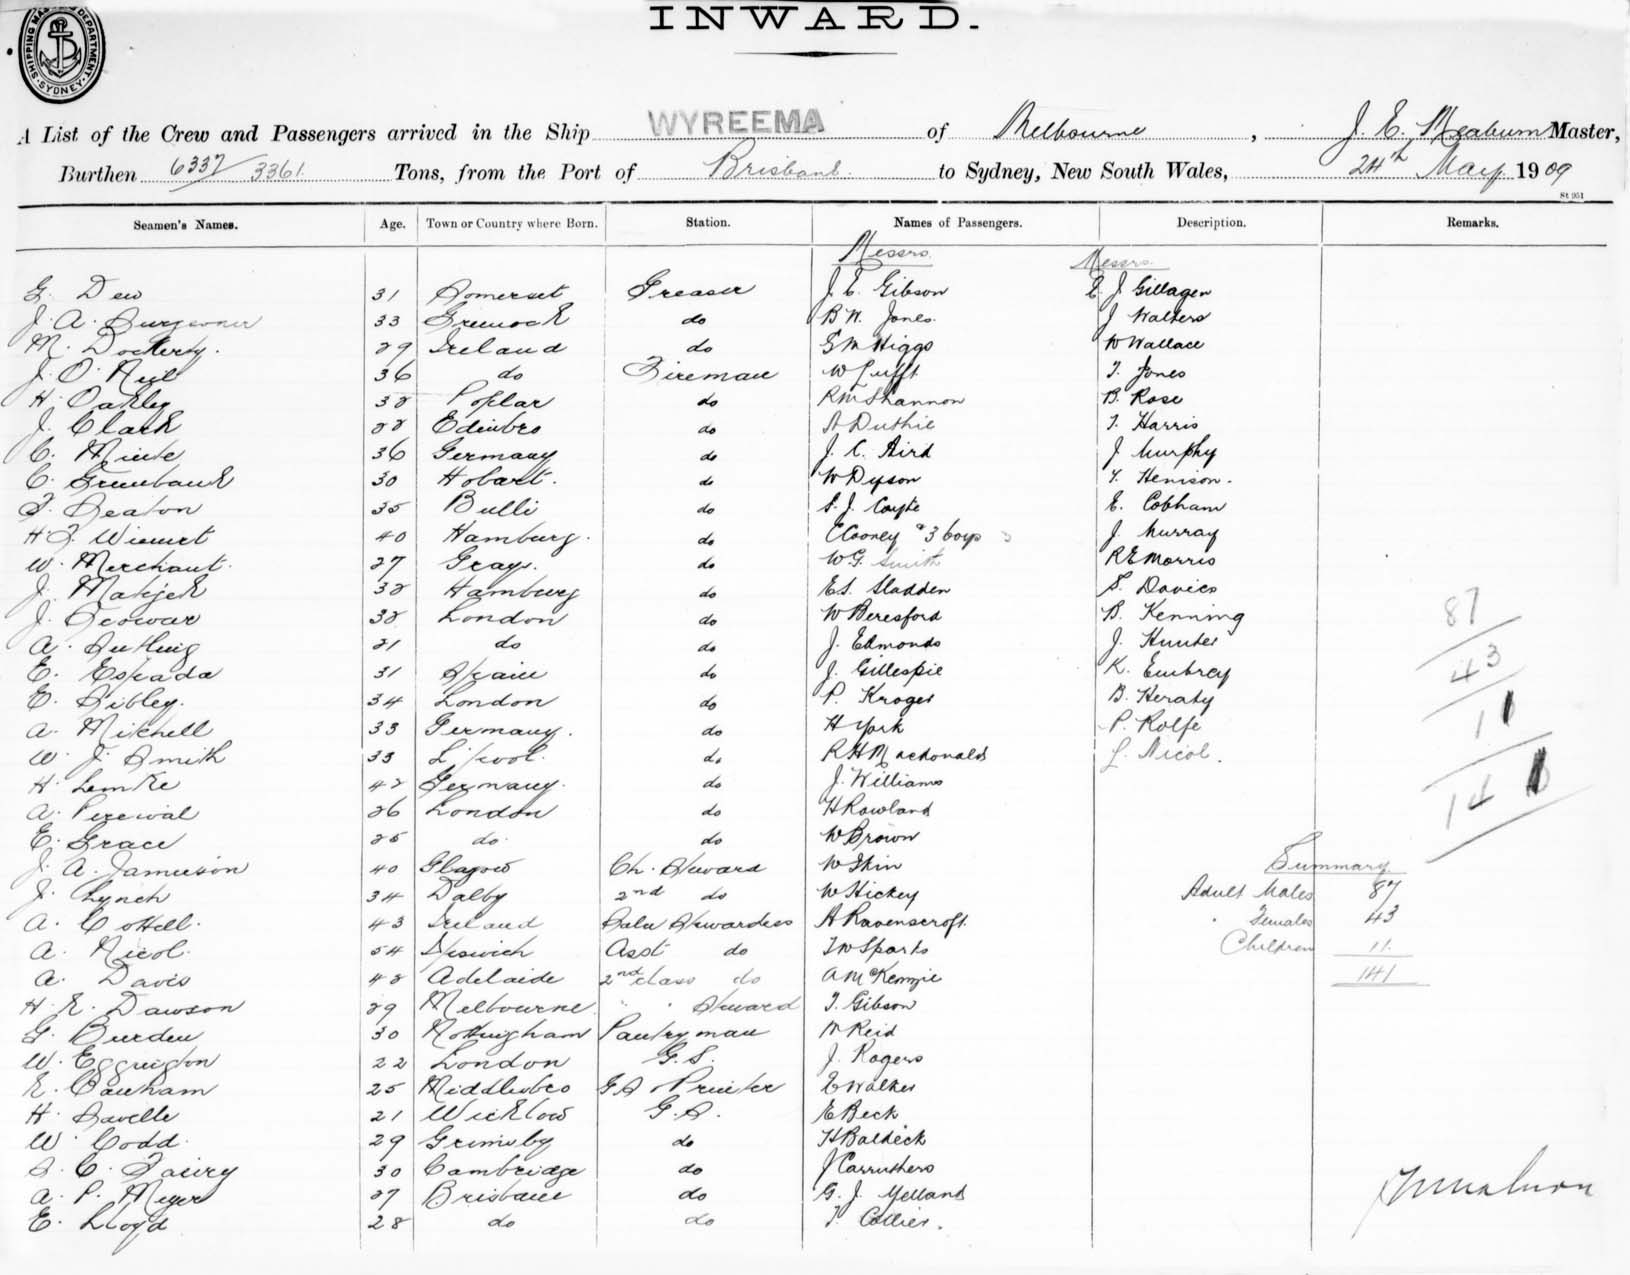 INWARD.
SHIPPING MASTERS DEPARTMENT. SYDNEY.
A List of the Crew and Passengers arrived in the Ship WYREEMA of Melbourne, J. E. Meaburn Master,
Burthen 6337/3361 Tons, from the Port of Brisbane to Sydney, New South Wales, 24th May 1909
St 951
Seamen's Names. Age. Town or Country where Born. Station. Names of Passengers. Description. Remarks.
Messrs. Messrs.
G. Dew 31 Somerset Greaser J. E. Gibson E. J Gillagen
J. A. 33 Greenock do B W. Jones. J Walters
M. Docherty. 29 Ireland do G M Higgs W Wallace
J. O'Neil 36 do Fireman W Tufft T. Jones
H. Oakley 38 Poplar do R McShannon B. Rose
J. Clark 28 Edinbro do A Duthie T. Harris
C. 36 Germany do J. C. Aird J Murphy
C. Greenbank 30 Hobart. do W Dyson T. Henison.
F. Seaton 35 Bulli do S. J. Coyte E. Cobham
H. F. Wienert 40 Hamburg. do E Cooney & 3 boys 3 J Murray
W. Merchant. 27 Grays. do W G. Smith R E Morris
J. Matijek 38 Hamburg do E S. Sladden S. Davies
J. 38 London do W Beresford B. Kenning
A. 21 do do J. Edmonds J. Hunter
E. Espada 31 Spain do J. Gillespie K. Embrey
E. Sibley. 34 London do P. Kroger B. Heraty
A. Mitchell 33 Germany. do H York P. Rolfe
W. J. Smith 33 L'pool. do R H Macdonald L. Nicol.
H. Lemke 42 Germany. do J. Williams
A. Percival 26 London do H Rowland
E. Grace 25 do. do W Brown
J. A. Jamieson 40 Glasgow Ch. Steward W Skin
J. Lynch 34 Dalby 2nd do W Hickey
A. Cottell. 43 Ireland Saln Stewardess A Ravenscroft.
A. Nicol. 54 Ipswich Asst do T W Sparks
A. Davis 42 Adelaide 2nd class do A McKenzie
H. E. Dawson 29 Melbourne " " Steward T. Gibson
G. Burden 30 Nottingham Pantryman W Reid
W. Eggington 22 London G.S. J. Rogers
E. Banham 25 Middlesbro G S & Printer E Walker
H. Savelle 21 Wicklow G.S. E Beck
W. Codd. 29 Grimsby do H Baldick
S. C. Fairey 30 Cambridge do J Carruthers
A. P. Meyer 27 Brisbane do G. J. Yelland
E. Lloyd 28 do do T. Collier.
87
43
11
141
Summary
Adult Males 87
" Females 43
Children 11.
141